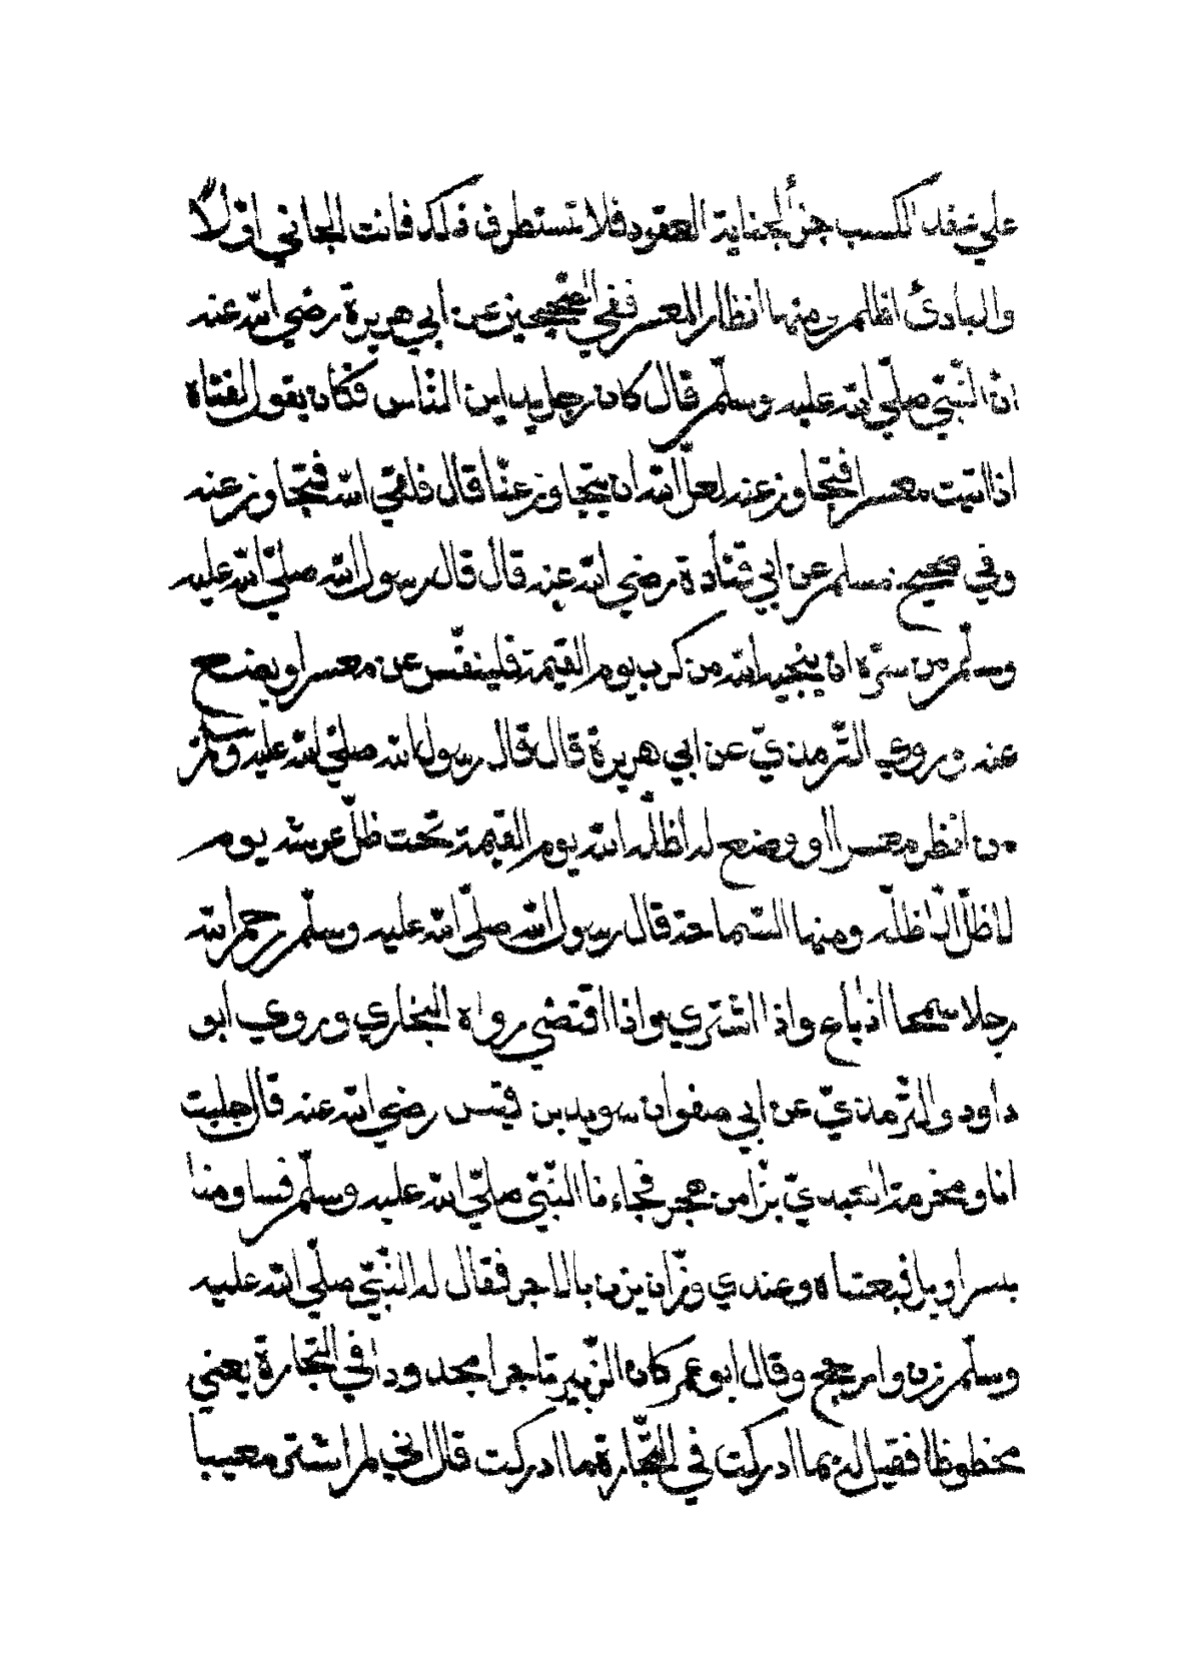 على عقد المكسب جزأ لجناية العقود فلا تستطرف ذلك فانت الجاني اوّلاً
والبادئ اظلم ومنها انظار المعسر ففي الصّحيحين عن ابي هريرة رضي الله عنه
انّ النّبيّ صلّي الله عليه وسلّم قال كان رجل يداين النّاس فكان يقول لفتاه
اذا اتيت معسرا فتجاوز عنه لعلّ الله ان يتجاوز عنّا قال فلقي الله فتجاوز عنه
وفي صحيح مسلم عن ابي قتادة رضي الله عنه قال قال رسول الله صلّي الله عليه
وسلّم من سرّه ان ينجيه الله من كرب يوم القيمة فلينفّس عن معسر او يضع
عنه وروي التّرمذيّ عن ابي هريرة قال قال رسول الله صلّي الله عليه وسلّم
من انظر معسرا او وضع له اظلّه الله يوم القيمة تحت ظلّ عرشه يوم
لا ظلّ الّا ظلّه ومنها السّماحة قال رسول الله صلّي الله عليه وسلّم رحم الله
رجلا سمحا اذا باع واذا اشتري واذا اقتضي رواه البخاري وروي ابو
داود والتّرمذيّ عن ابي صفوان سويد بن قيس رضي الله عنه قال جلبت
انا ومخرمة العبديّ بزّا من هجر فجاءنا النّبيّ صلّي الله عليه وسلّم فساومنا
بسراويل فبعناه وعندي وزّان يزن بالاجر فقال له النّبيّ صلّي الله عليه
وسلّم زن وارجح وقال ابو عمر كان الزّبير تاجرا مجدودا في التّجارة يعني
محظوظا فقيل له بما ادركت في التّجارة ما ادركت قال اني لم اشتر معيبا